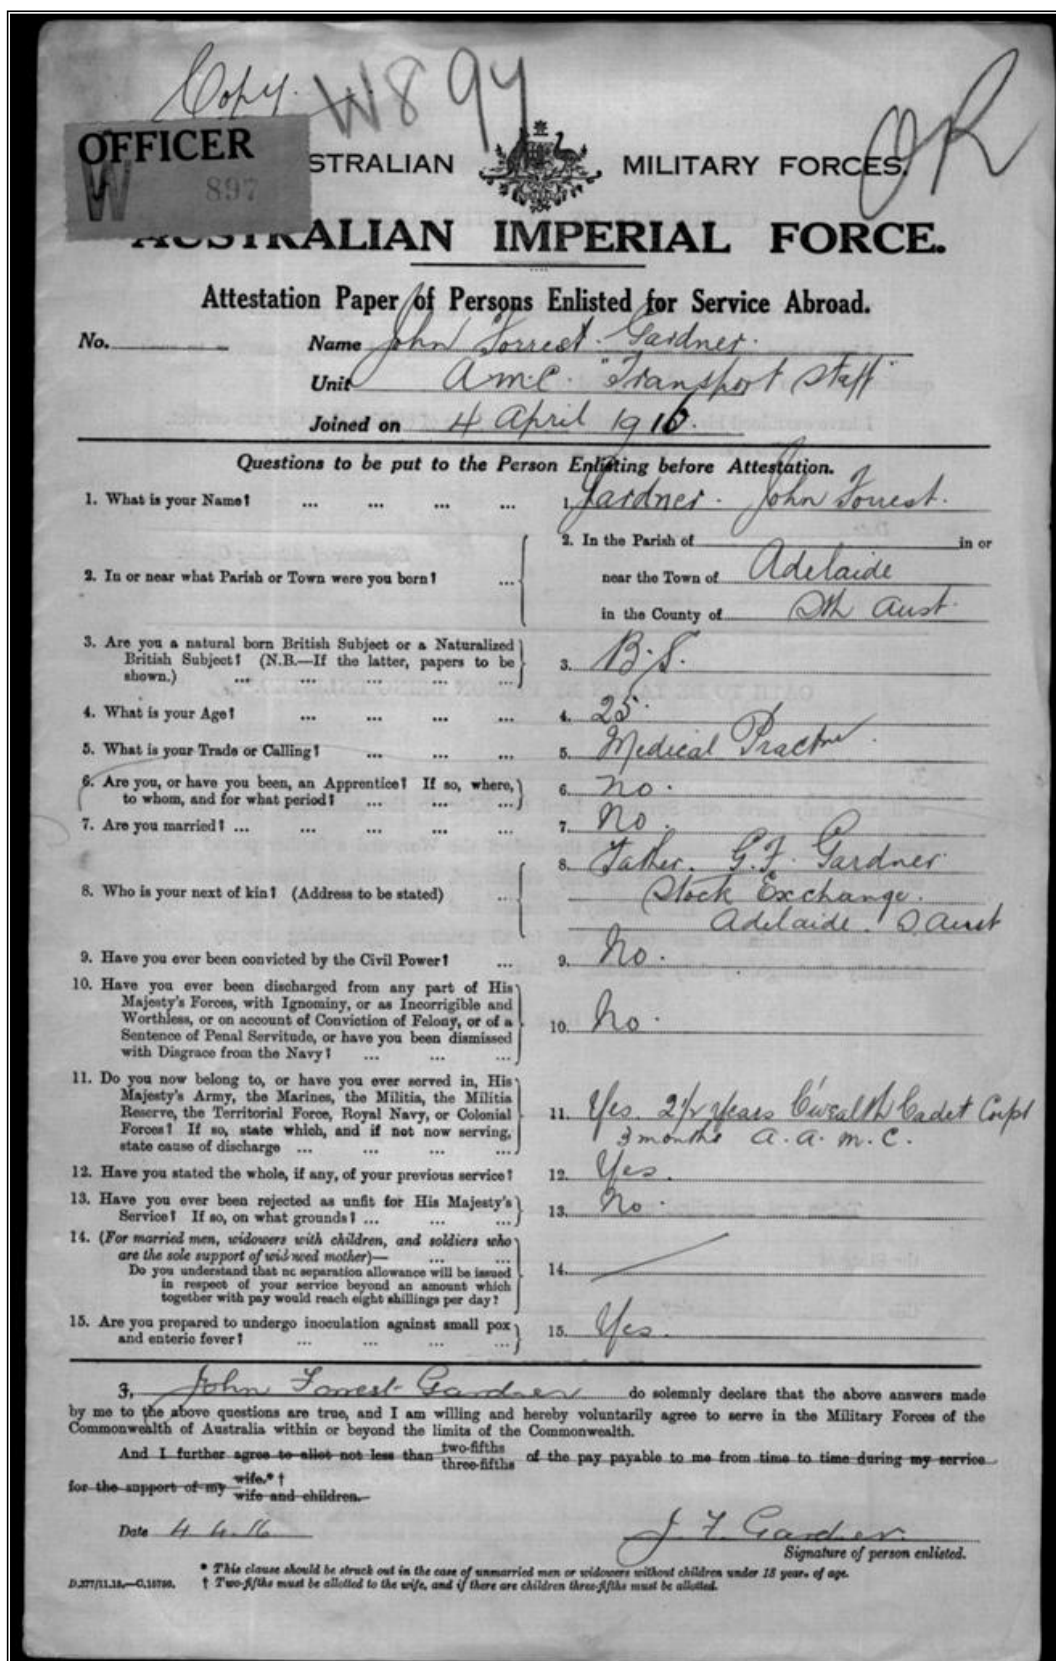 Copy.
W894
OR
OFFICER
W 897
STRALIAN MILITARY FORCES.
AUSTRALIAN IMPERIAL FORCE.
Attestation Paper of Persons Enlisted for Service Abroad.
No. Name John Forrest Gardner.
Unit A.M.C. "Transport Staff"
Joined on 4 April 1916.
Questions to be put to the Person Enlisting before Attestation.
1. What is your Name? ... ... ... ... 1. Gardner. John Forrest.
2. In the Parish of in or
2. In or near what Parish or Town were you born? ... near the Town of Adelaide
in the County of Sth Aust.
3. Are you a natural born British Subject or a Naturalized
British Subject? (N.B.—If the latter, papers to be
shown.) ... ... ... ... ... 3. B.S.
4. What is your Age? ... ... ... ... 4. 25.
5. What is your Trade or Calling? ... ... ... 5. Medical Practnr.
6. Are you, or have you been, an Apprentice? If so, where,
to whom, and for what period? ... ... ... 6. No.
7. Are you married? ... ... ... ... ... 7. No.
8. Father. G.F. Gardner
8. Who is your next of kin? (Address to be stated) ... Stock Exchange.
Adelaide. S Aust
9. Have you ever been convicted by the Civil Power? ... 9. No.
10. Have you ever been discharged from any part of His
Majesty's Forces, with Ignominy, or as Incorrigible and
Worthless, or on account of Conviction of Felony, or of a
Sentence of Penal Servitude, or have you been dismissed
with Disgrace from the Navy? ... ... ... 10. No.
11. Do you now belong to, or have you ever served in, His
Majesty's Army, the Marines, the Militia, the Militia
Reserve, the Territorial Force, Royal Navy, or Colonial
Forces? If so, state which, and if not now serving,
state cause of discharge ... ... ... ... 11. Yes. 2½ years C'wealth Cadet Corps
3 months A.A.M.C.
12. Have you stated the whole, if any, of your previous service? 12. Yes.
13. Have you ever been rejected as unfit for His Majesty's
Service? If so, on what grounds? ... ... ... 13. No.
14. (For married men, widowers with children, and soldiers who
are the sole support of widowed mother)— ... ...
Do you understand that no separation allowance will be issued
in respect of your service beyond an amount which
together with pay would reach eight shillings per day? 14.
15. Are you prepared to undergo inoculation against small pox
and enteric fever? ... ... ... ... 15. Yes.
I, John Forrest Gardner do solemnly declare that the above answers made
by me to the above questions are true, and I am willing and hereby voluntarily agree to serve in the Military Forces of the
Commonwealth of Australia within or beyond the limits of the Commonwealth.
And I further agree to allot not less than two-fifths three-fifths of the pay payable to me from time to time during my service
for the support of my wife.* † wife and children.
Date 4.4.16 J. F. Gardner.
Signature of person enlisted.
* This clause should be struck out in the case of unmarried men or widowers without children under 18 years of age.
D.277/11.15.—C.15780. † Two-fifths must be allotted to the wife, and if there are children three-fifths must be allotted.